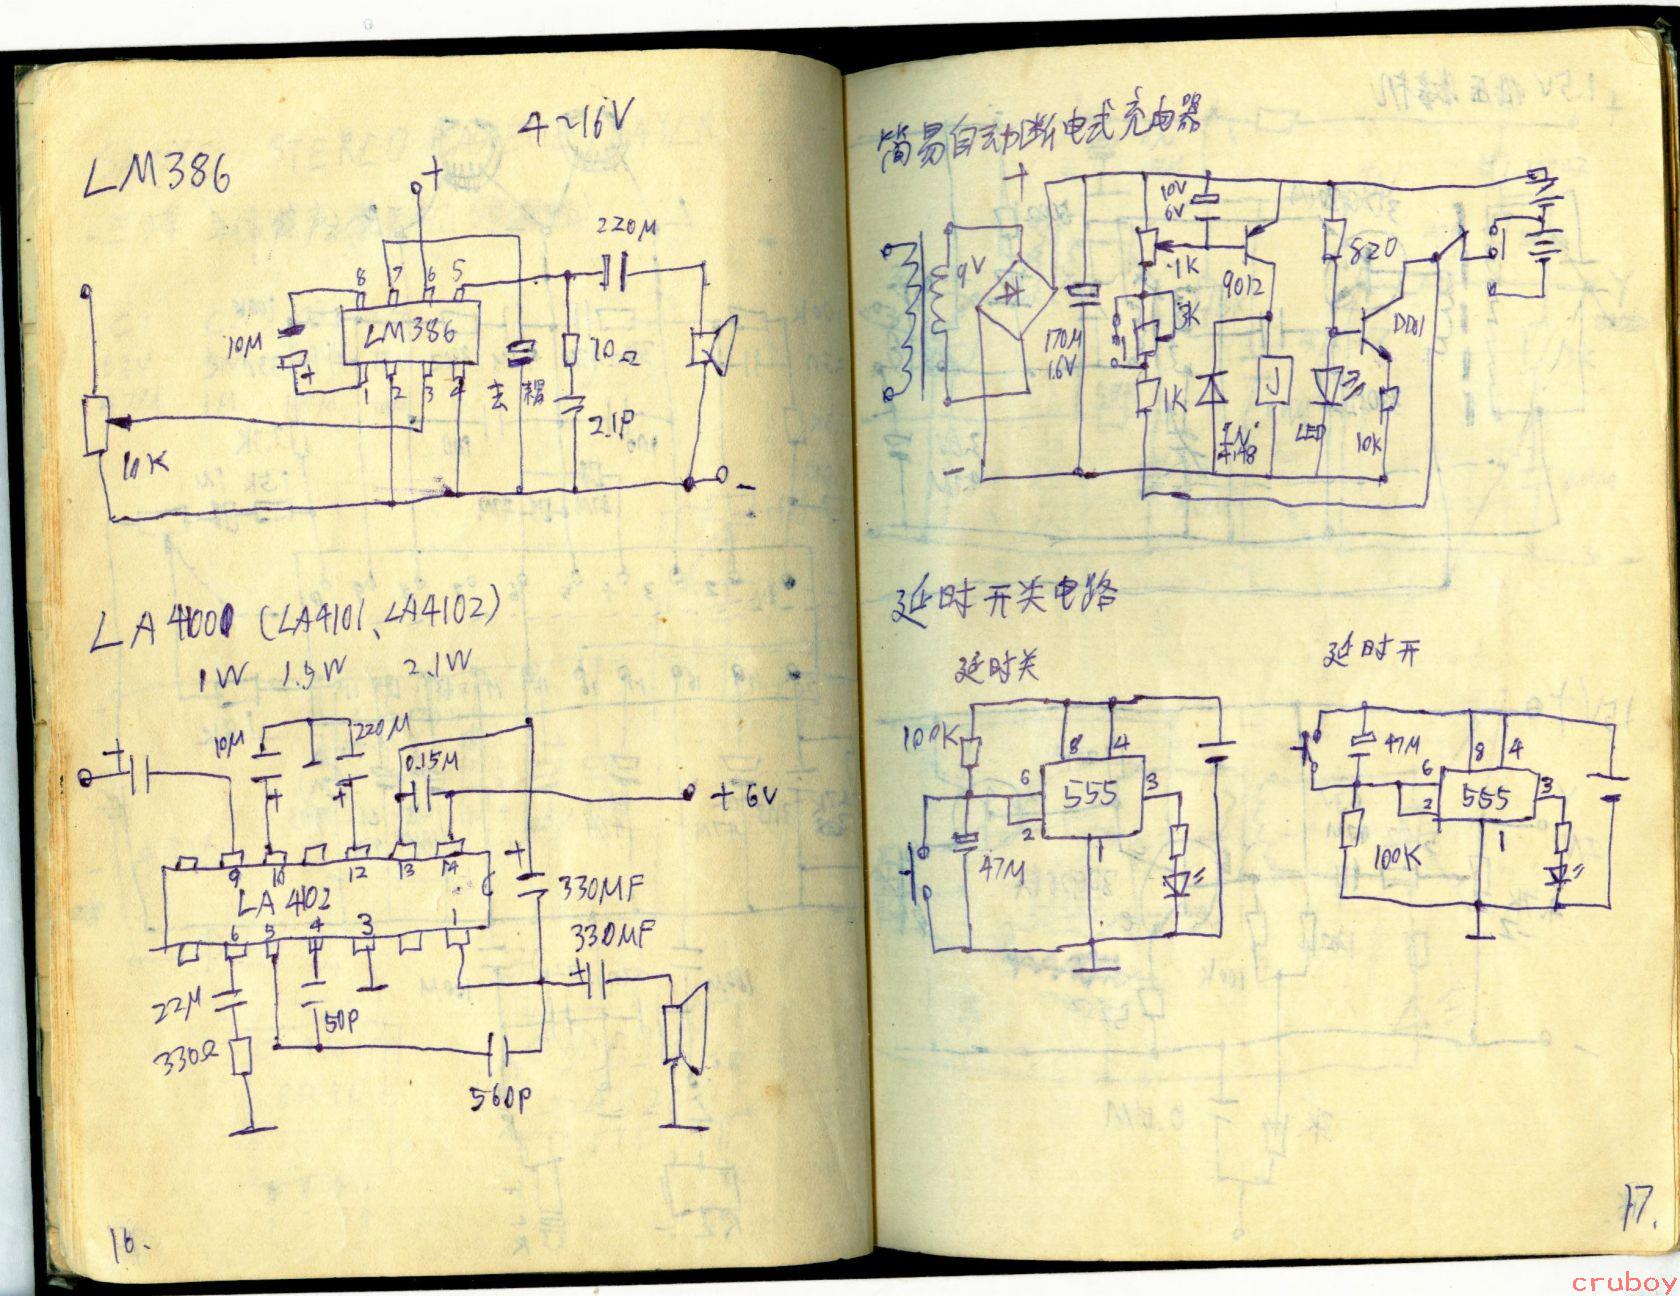 LM386
4~16V
+
220M
8 7 6 5
LM386
10M
+
1 2 3 4
去耦
10Ω
2.1P
10K
-
LA4100 (LA4101、LA4102)
1W 1.5W 2.1W
+
10M
220M
0.15M
+
+
+6V
9 10 12 13 14
LA4102
+
330MF
6 5 4 3 1
330MF
+
22M
50P
330Ω
560P
16.
简易自动断电式充电器
+
10V
6V
9V
1K
9012
820
3K
DD01
1.6V
1K
4148
LED
10K
-
延时开关电路
延时关
100K
8 4
6
555
3
2
1
47M
延时开
47M
8 4
6
555
3
2
1
100K
17.
cruboy